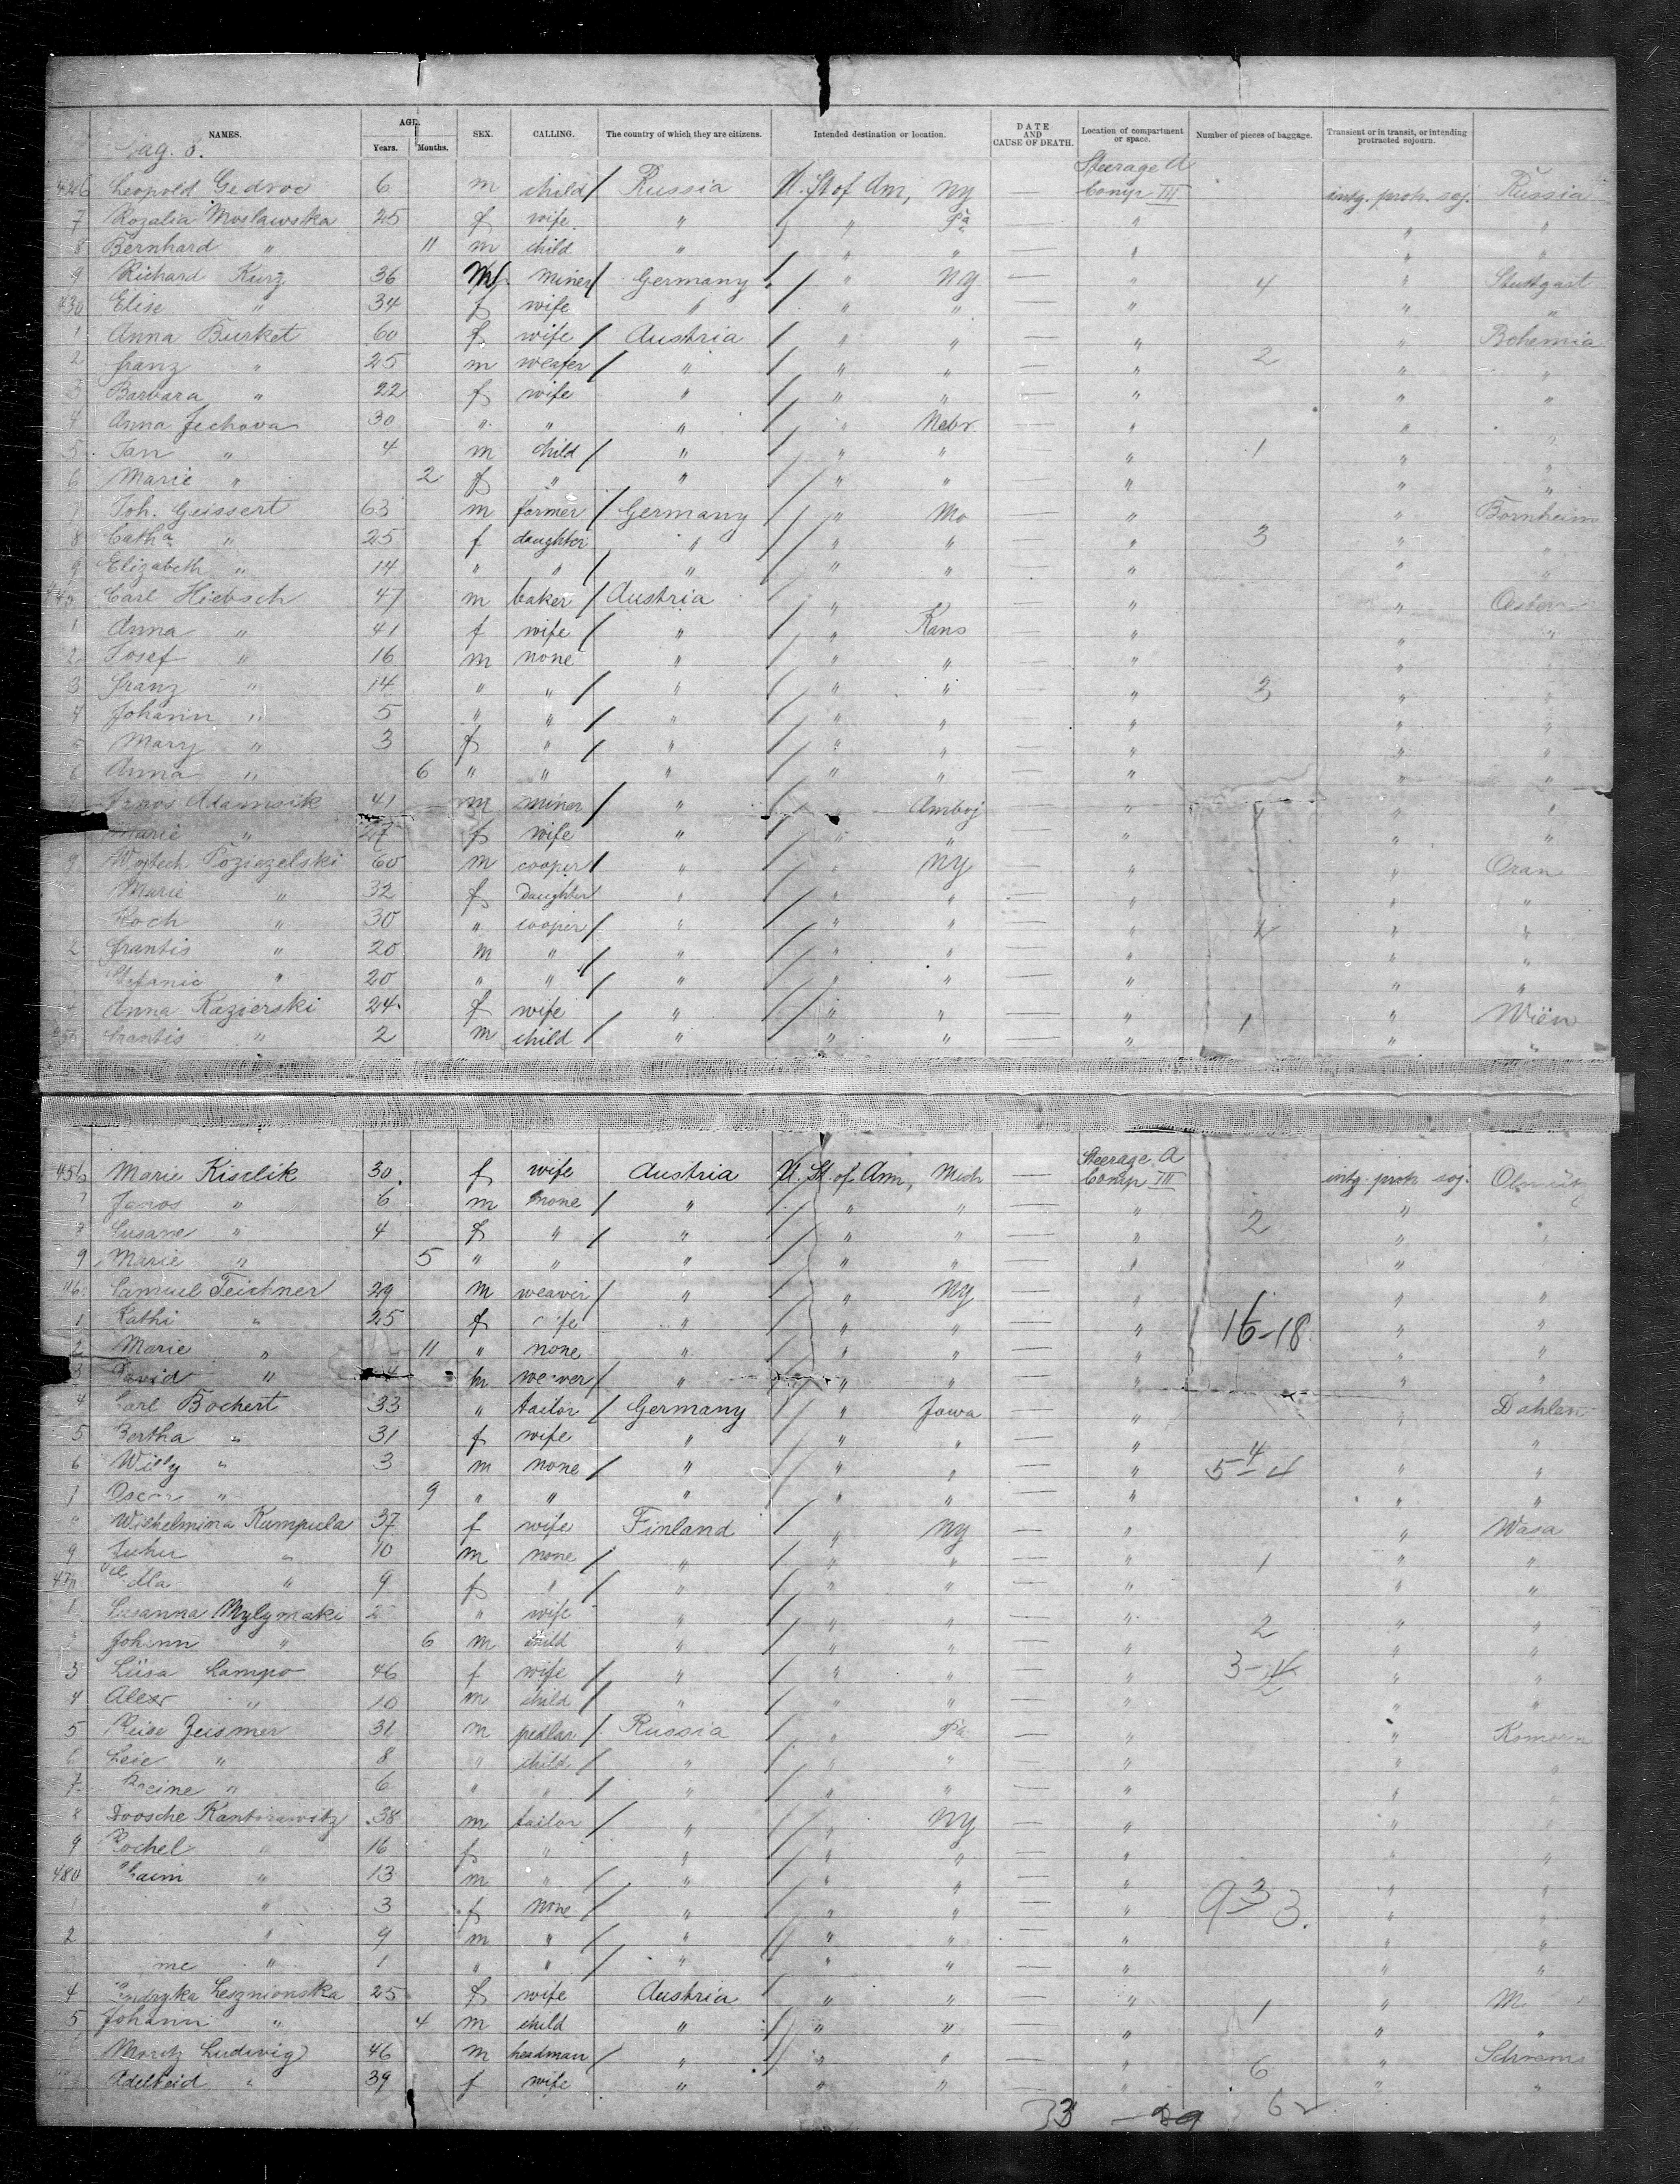 NAMES. AGE. Years. Months. SEX. CALLING. The country of which they are citizens. Intended destination or location. DATE AND CAUSE OF DEATH. Location of compartment or space. Number of pieces of baggage. Transient or in transit, or intending protracted sojourn.
Pag. 8.
426 Leopold Gedroc 6 m child / Russia U. St of Am, Ny — Steerage A Comp III intg. protr. soj. Russia
7 Rozalia Moslawska 25 f wife " / " Pa " " "
8 Bernhard " 11 m child " / " " " " "
9 Richard Kurz 36 m miner / Germany / " Ny — " 4 " Stuttgart
430 Elise " 34 f wife " / " " — " " "
1 Anna Burket 60 f wife / Austria / " " — " " Bohemia
2 Franz " 25 m weafer / " / " " — " 2 " "
3 Barbara " 22 f wife " / " " — " " "
4 Anna Jechova 30 " " " / " Nebr. — " " "
5 Jan " 4 m child / " / " " — " 1 " "
6 Marie " 2 f " " / " " — " " "
7 Joh. Geissert 63 m farmer / Germany / " Mo — " " Bornheim
8 Catha " 25 f daughter " / " " — " 3 " "
9 Elizabeth " 14 " " / " / " " — " " "
440 Carl Hiebsch 47 m baker / Austria / " — " "
1 Anna " 41 f wife / " / " Kans — " " "
2 Josef " 16 m none " / " " — " " "
3 Franz " 14 " " / " / " " — " 3 " "
4 Johann " 5 " " / " / " " — " " "
5 Mary " 3 f " / " / " " — " " "
6 Anna " 6 " " " / " " — " " "
Janos Adamsik 41 m miner / " / " Amboy — " " "
Marie " 27 f wife " / " " — " " "
9 Wojtech Poziezelski 60 m cooper / " / " Ny — " " Oran
Marie " 32 f Daughter " / " " — " " "
Roch " 30 " cooper / " / " " — " " "
2 Frantis " 20 m " / " / " " — " " "
Stefanie " 20 " " / " / " " — " " "
4 Anna Kazierski 24 f wife " / " " — " 1 " Wien
455 Frantis " 2 m child / " / " " — " " "
456 Marie Kiselik 30. f wife Austria U. St. of Am, Mich — Steerage A Comp III intg. protr. soj. Olmütz
7 Janos " 6 m none / " / " " — " " "
8 Susane " 4 f " / " / " " — " 2 " "
9 Marie " 5 " " " / " " — " "
Samuel Teichner 29 m weaver / " / " Ny — " " "
1 Kathi " 25 f wife " / " " — " 16-18 " "
2 Marie " 11 " none " / " " — " " "
3 David " m weaver / " / " " — " " "
4 Carl Bochert 33 " tailor / Germany / " Jowa — " " Dahlen
5 Bertha " 31 f wife " / " " — " 4 " "
6 Willy " 3 m none / " / " " — " 5-4 " "
Oscar " 9 " " " / " " — " " "
Wilhelmina Kumpula 37 f wife Finland / " Ny — " " Wasa
9 Juhu " 10 m none / " / " " — " 1 " "
470 " 9 f " / " / " " — " " "
1 Susanna Mylymaki " wife " / " " — " 2 " "
Johann " 6 m child " / " " — " " "
3 Liisa Lampo 46 f wife / " / " " — " 3- " "
4 Alexr " 10 m child / " / " " — " " "
5 Reise Zeismer 31 m pedlar / Russia / " Pa — " " Komorn
6 Leie " 8 " child / " / " " — " " "
7 " 6 " " / " / " " — " " "
8 Doosche Kantorawitz 38 m tailor / " / " Ny — " " "
9 Rochel " 16 f " " / " " — " " "
480 Chaim " 13 m " / " / " " — " " "
1 " 3 f none / " / " " — " 9 3 3. " "
2 " 9 m " / " / " " — " " "
" 1 " " / " / " " — " " "
4 Lesznionska 25 f wife Austria / " " — " 1 "
5 Johann " 4 m child " / " " — " " "
Moritz Ludwig 46 m headman / " / " " — " 6 " Schrems
Adelheid " 39 f wife " " " — " " "
33 — 29 62